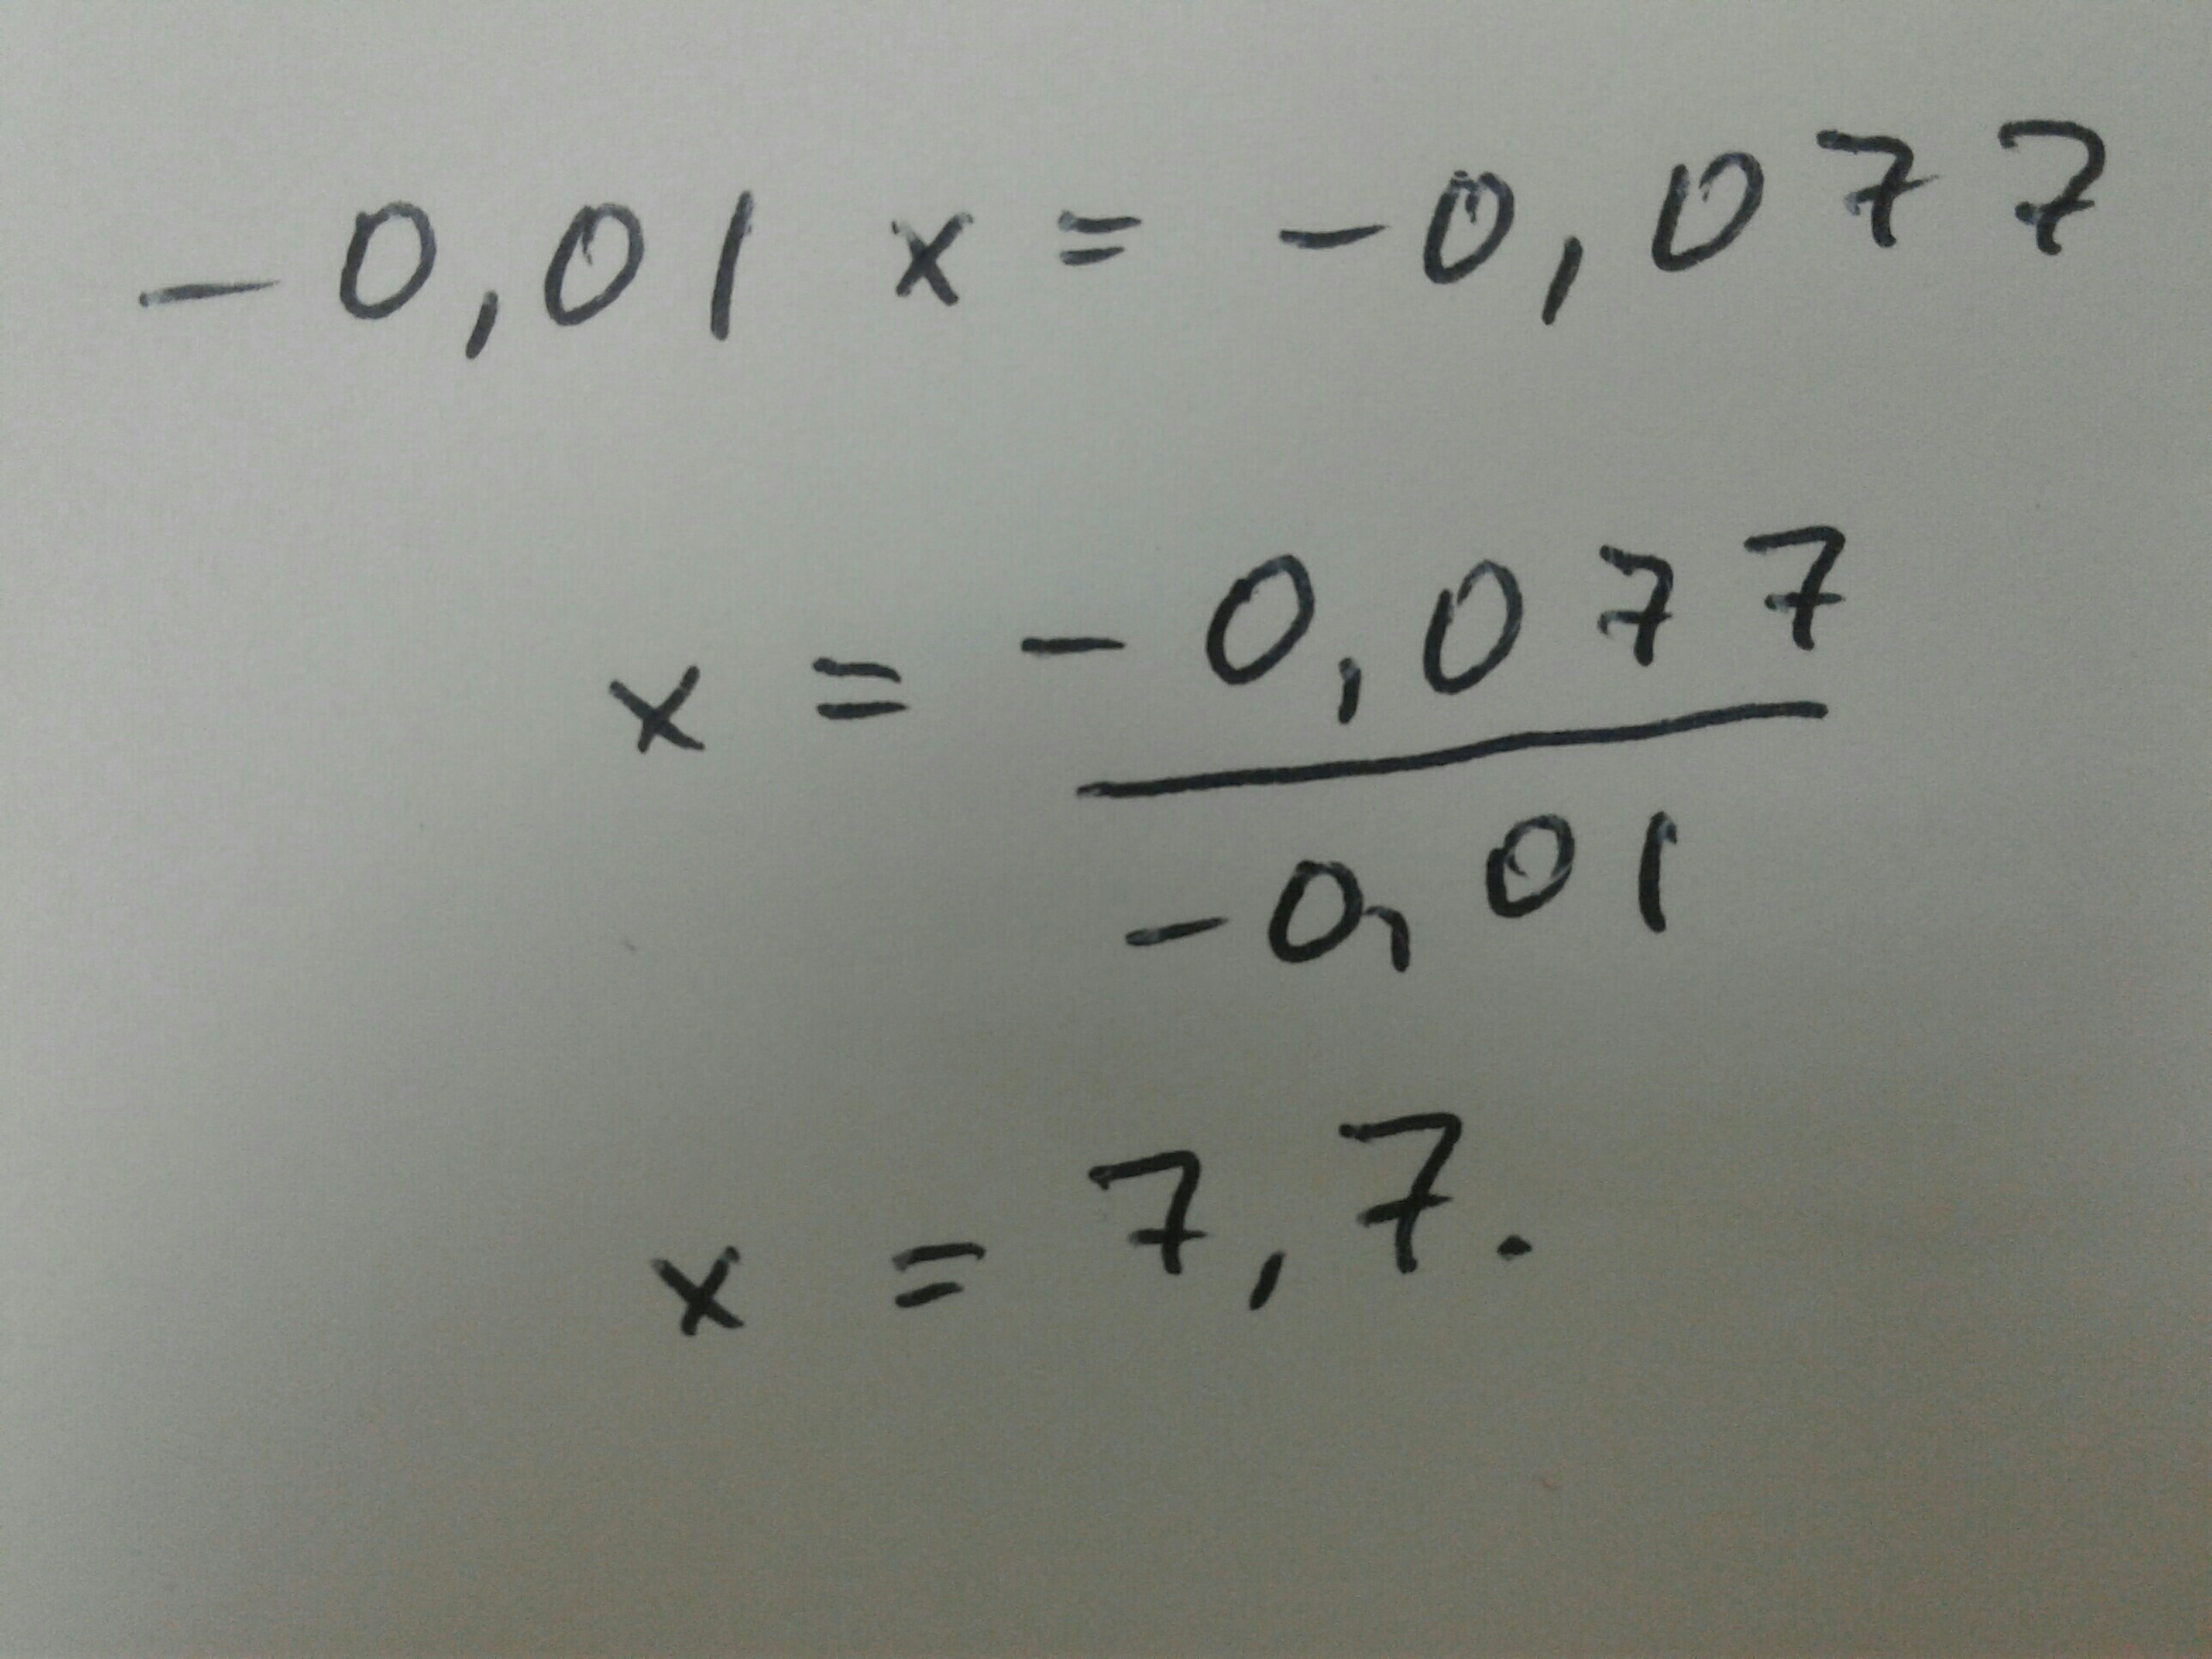 -0,01 x = -0,077
x = -0,077 / -0,01
x = 7,7.